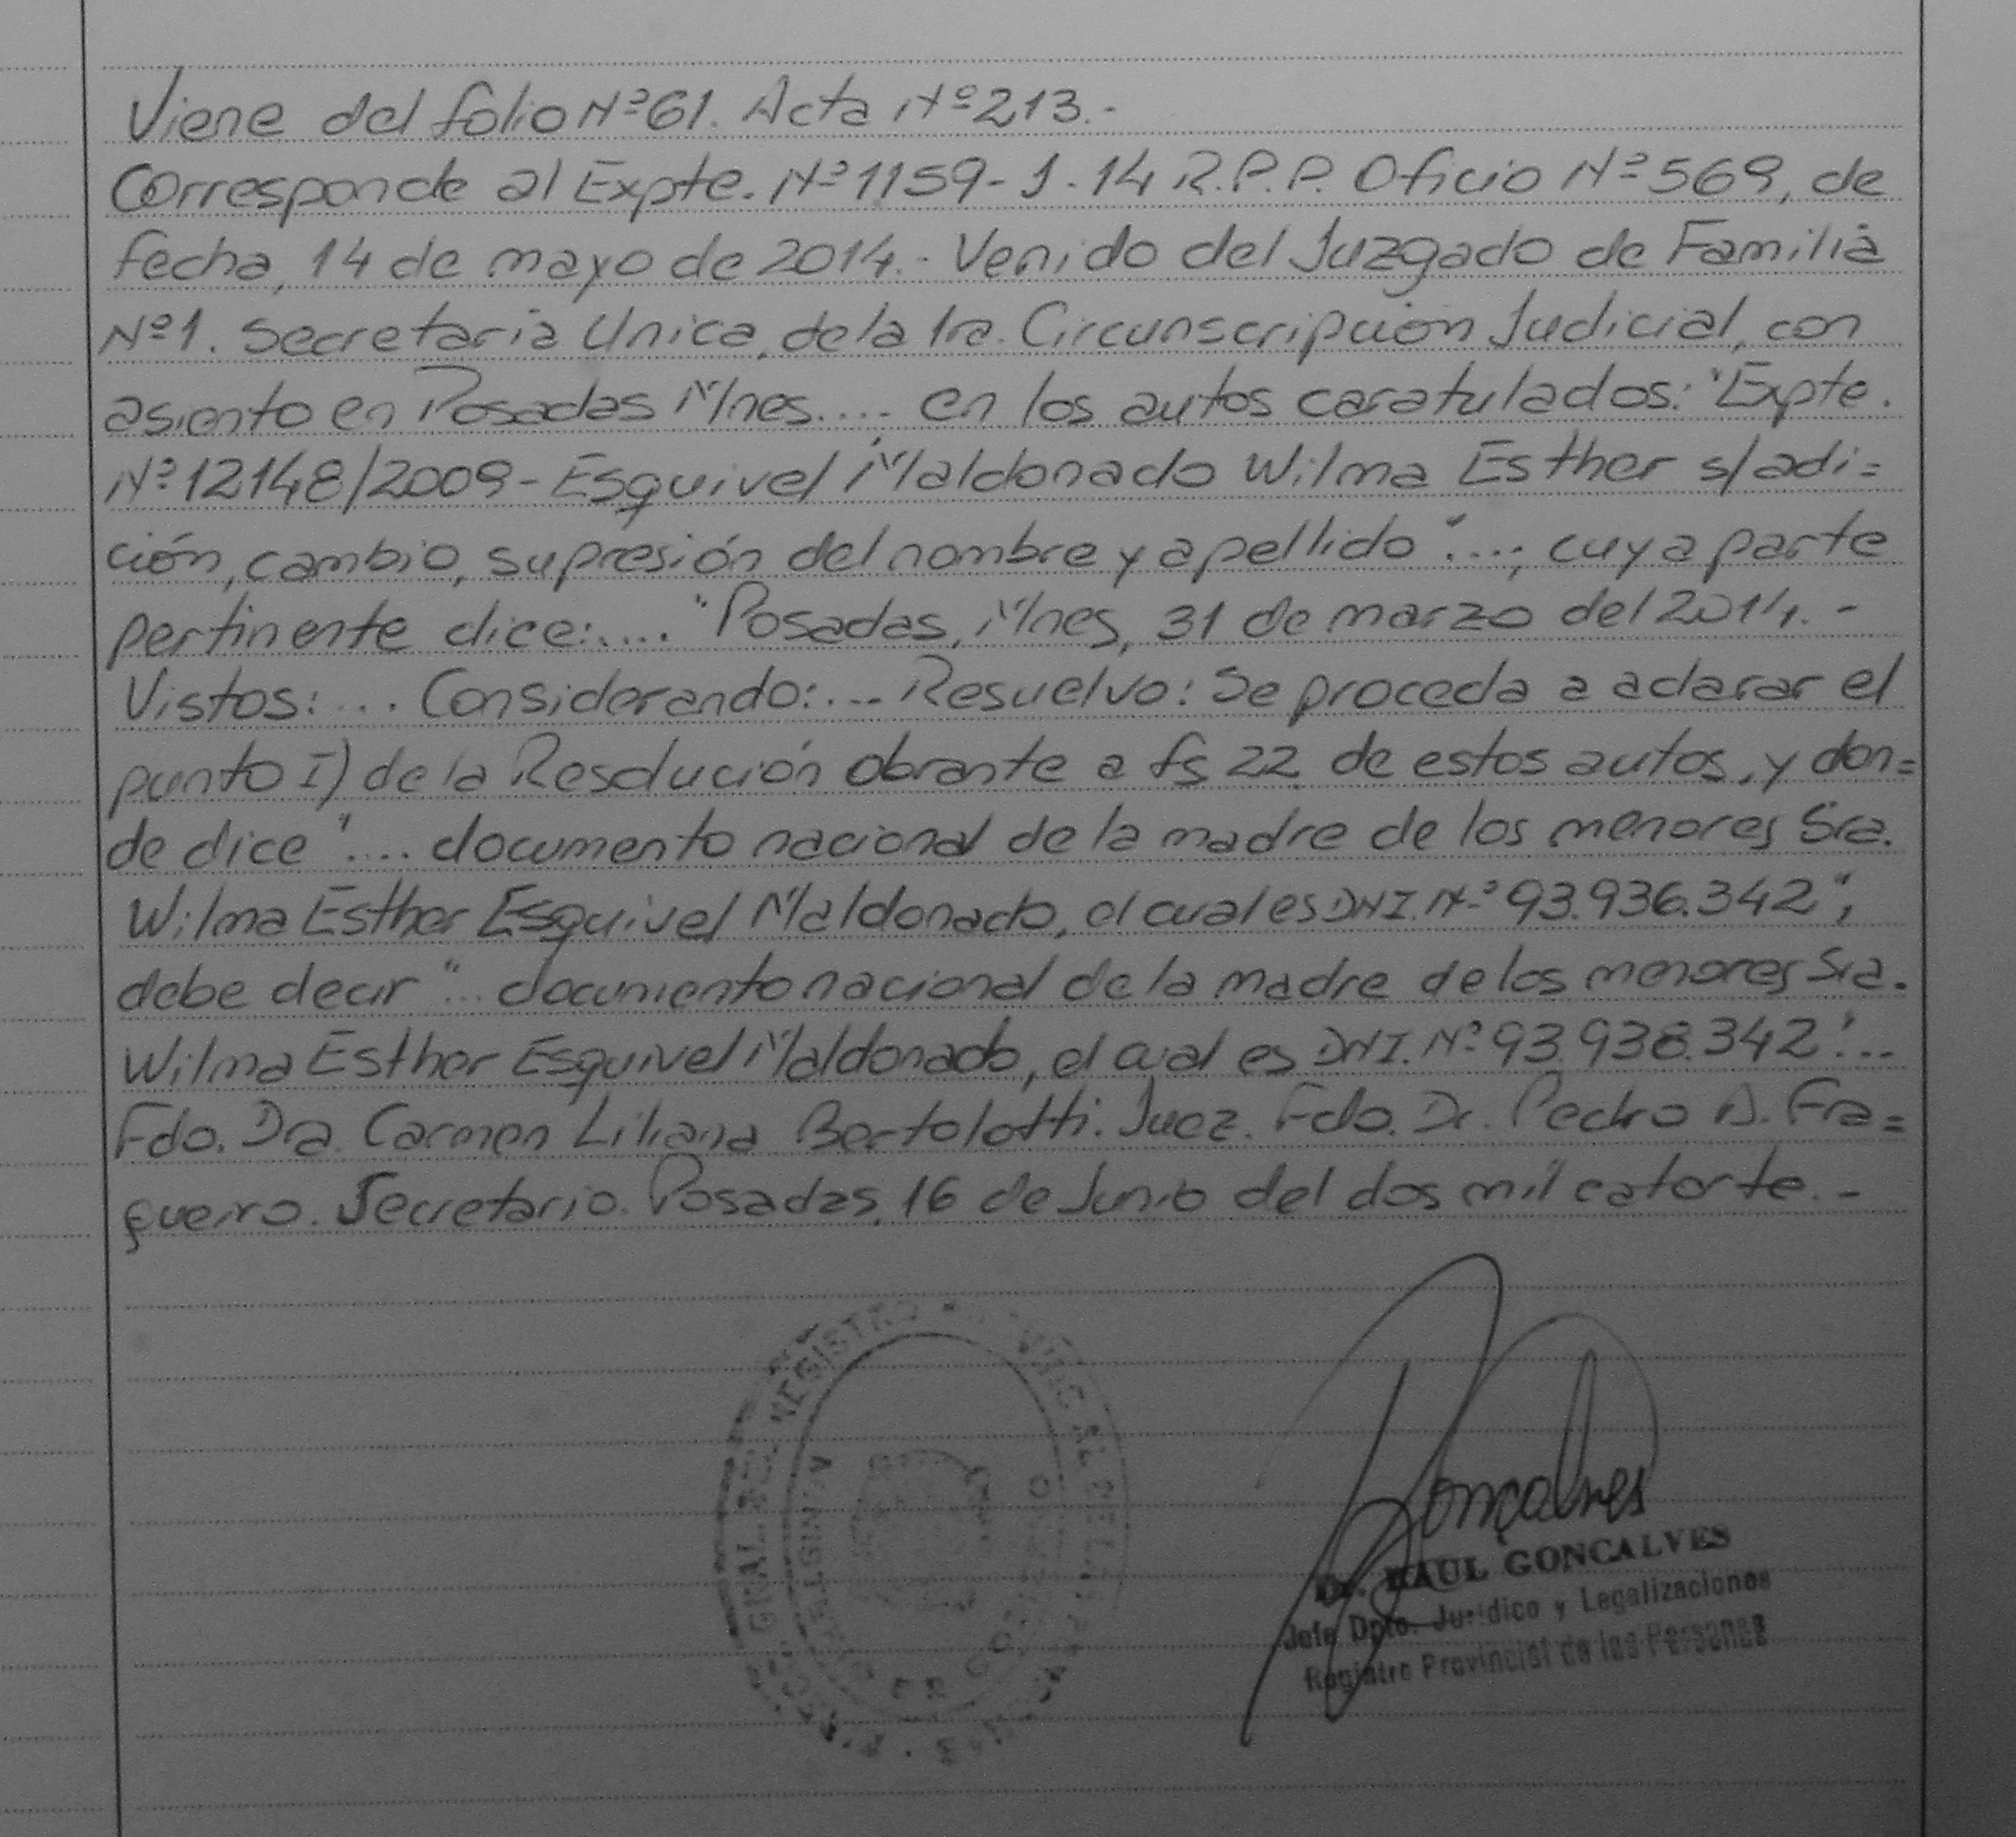 Viene del folio Nº 61. Acta Nº 213.-
Corresponde al Expte. Nº 1159-J-14 R.P.P. Oficio Nº 569, de
fecha, 14 de mayo de 2014.- Venido del Juzgado de Familia
Nº 1. Secretaria Unica, de la 1ra. Circunscripción Judicial, con
asiento en Posadas Mnes.... en los autos caratulados: "Expte.
Nº 12148/2009 - Esquivel Maldonado Wilma Esther s/adi=
ción, cambio, supresión del nombre y apellido"....; cuya parte
pertinente dice:.... "Posadas, Mnes, 31 de marzo del 2014.-
Vistos:... Considerando:... Resuelvo: Se proceda a aclarar el
punto I) de la Resolución obrante a fs 22 de estos autos, y don=
de dice ".... documento nacional de la madre de los menores Sra.
Wilma Esther Esquivel Maldonado, el cual es DNI. Nº 93.936.342";
debe decir "... documento nacional de la madre de los menores Sra.
Wilma Esther Esquivel Maldonado, el cual es DNI. Nº 93.938.342"...
Fdo. Dra. Carmen Liliana Bertolotti. Juez. Fdo. Dr. Pedro A. Fra=
gueiro. Secretario. Posadas, 16 de Junio del dos mil catorte.-
REGISTRO
Gonçalves
Dr. RAUL GONCALVES
Jefe Dpto. Jurídico y Legalizaciones
Registro Provincial de las Personas